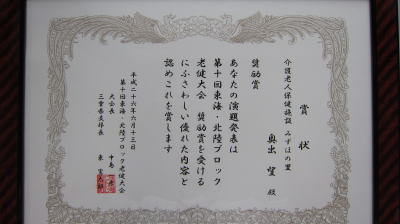 賞状
介護老人保健施設 みずほの里
奥出 望 殿
奨励賞
あなたの演題発表は
第十回東海・北陸ブロック
老健大会 奨励賞を受ける
にふさわしい優れた内容と
認めこれを賞します
平成二十六年六月十三日
第十回東海・北陸ブロック老健大会
大会長 中島
三重県支部長 東